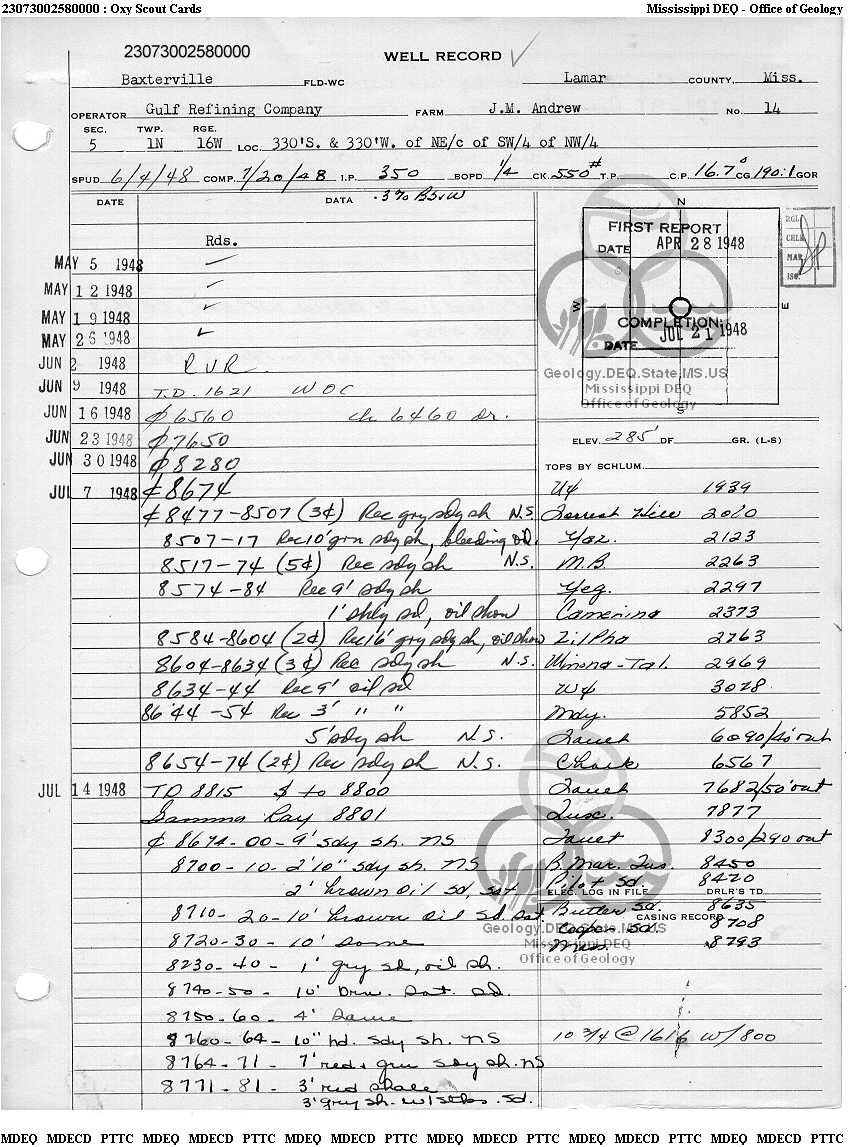 23073002580000 : Oxy Scout Cards
Mississippi DEQ - Office of Geology
23073002580000
WELL RECORD
Baxterville FLD-WC Lamar COUNTY, Miss.
OPERATOR Gulf Refining Company FARM J.M. Andrew No. 14
SEC. TWP. RGE.
5 1N 16W LOC. 330'S. & 330'W. of NE/c of SW/4 of NW/4
SPUD 6/4/48 COMP. 7/20/48 I.P. 350 BOPD 1/4 CK. 550# T.P. C.P. 16.7° CG 190:1 GOR
DATE DATA .3% BS&W
Rds.
MAY 5 1948
MAY 12 1948
MAY 19 1948
MAY 26 1948
JUN 2 1948 RUR.
JUN 9 1948 T.D. 1621 WOC
JUN 16 1948 ₵ 6560 ch 6460 dr.
JUN 23 1948 ₵ 7650
JUN 30 1948 ₵ 8280
JUL 7 1948 ₵ 8674
₵ 8477-8507 (3₵) Rec gry sdy sh N.S.
8507-17 Rec 10' grn sdy sh, bleeding oil.
8517-74 (5₵) Rec sdy sh N.S.
8574-84 Rec 9' sdy sh
1' shly sd, oil show
8584-8604 (2₵) Rec 16' gry sdy sh, oil show
8604-8634 (3₵) Rec sdy sh N.S.
8634-44 Rec 9' oil sd
8644-54 Rec 3' " "
5' sdy sh N.S.
8654-74 (2₵) Rec sdy sh N.S.
JUL 14 1948 TD 8815 $ to 8800
Gamma Ray 8801
₵ 8674-00-9' sdy sh. NS
8700-10-2'10" sdy sh. NS
2' brown oil sd, sat.
8710-20-10' brown oil sd. sat.
8720-30-10' same
8230-40-1' gry sh, oil sh.
8740-50-10' Brn. sat. sd.
8750-60-4' same
8760-64-10" hd. sdy sh. NS
8764-71-7' red & grn sdy sh. NS
8771-81-3' red shale
3' gry sh. w/ stks. sd.
N
FIRST REPORT
DATE APR 28 1948
W E
COMPLETION
DATE JUL 21 1948
S
RGL
CHLK
MAR
ISO.
Geology.DEQ.State.MS.US
Mississippi DEQ
Office of Geology
ELEV. 285' DF GR. (L-S)
TOPS BY SCHLUM.
1939
Forrest Hill 2010
Yaz. 2123
M.B. 2263
Yeg. 2297
Camerina 2373
Zilpha 2763
Winona-Tal. 2969
3028
Mdy. 5852
Fault 6090/40' out
Chalk 6567
Fault 7682/50' out
Tusc. 7877
Fault 8300/290 out
B. Mar. Tus. 8450
Pilot Sd. 8470
ELEC. LOG IN FILE DRLR'S TD
Butler Sd. 8635
CASING RECORD
Cooper Sd. 8708
Mass. 8793
Geology.DEQ.State.MS.US
Mississippi DEQ
Office of Geology
10 3/4 @ 1616 W/800
MDEQ MDECD PTTC MDEQ MDECD PTTC MDEQ MDECD PTTC MDEQ MDECD PTTC MDEQ MDECD PTTC MDEQ MDECD PTTC